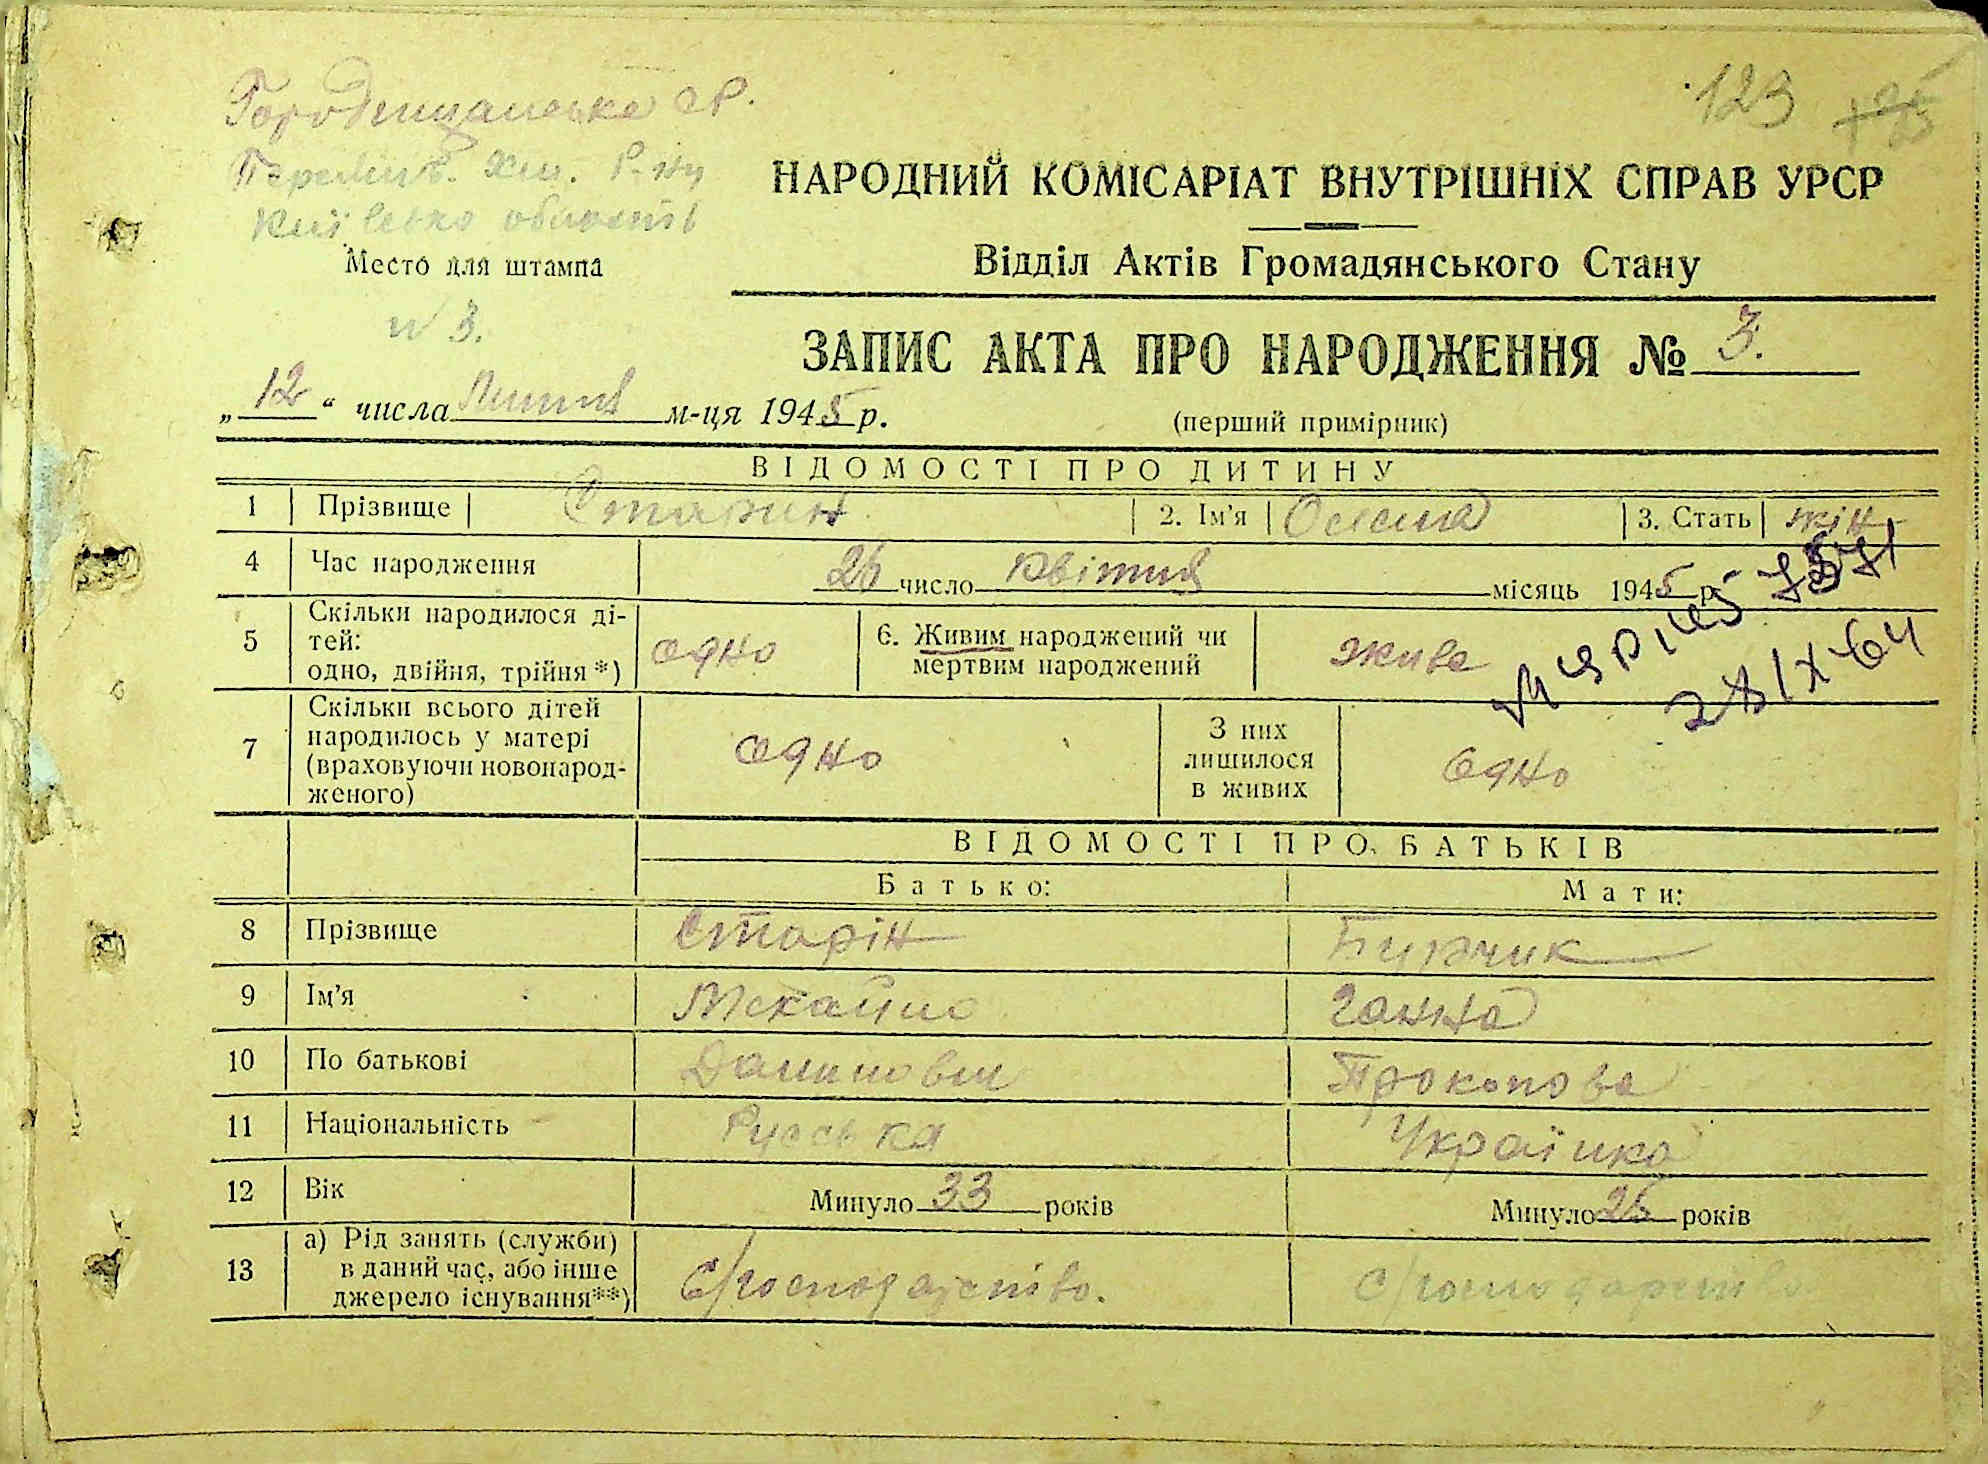 123
Городищанська с/Р.
Переяслів. Хм. Р-ну
Київської області
Место для штампа
НАРОДНИЙ КОМІСАРІАТ ВНУТРІШНІХ СПРАВ УРСР
Відділ Актів Громадянського Стану
№ 3.
ЗАПИС АКТА ПРО НАРОДЖЕННЯ № 3.
„12“ числа Липня м-ця 1945 р.
(перший примірник)
ВІДОМОСТІ ПРО ДИТИНУ
1 Прізвище Старин 2. Ім'я Олена 3. Стать жін
4 Час народження 26 число Квітня місяць 1945 р
5 Скільки народилося ді-
тей:
одно, двійня, трійня *) одно 6. Живим народжений чи
мертвим народжений живе
28/IX 64
7 Скільки всього дітей
народилось у матері
(враховуючи новонарод-
женого) одно З них
лишилося
в живих одно
ВІДОМОСТІ ПРО БАТЬКІВ
Батько: Мати:
8 Прізвище Старін Бурчик
9 Ім'я Михайло Ганна
10 По батькові Данилович Прокопова
11 Національність Руська Українка
12 Вік Минуло 33 років Минуло 26 років
13 а) Рід занять (служби)
в даний час, або інше
джерело існування**) С/господарство. С/господарство